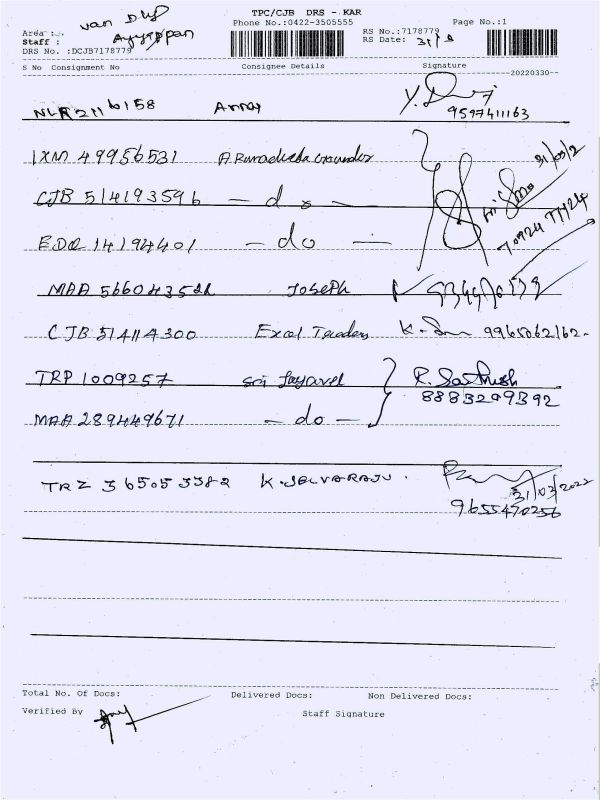 TPC/CJB DRS - KAR
Phone No.:0422-3505555 Page No.:1
Area : van D/D
Staff : Ayyappan
RS No.:7178779
RS Date: 31/
DRS No. :DCJB7178779
S No Consignment No Consignee Details Signature
20220330--
NLR 2116158 Array
9597411163
IXM 49956531
31/03/2
CJB 514193596 - do -
TN24
EDQ 14194401 - do -
MAA 566043522 Joseph
CJB 514114300 Excel Traders 9965062162-
TRP 1009257 Sri Jayavel R. Sathish
8883209392
MAA 289449671 - do -
TRZ 365053382 K. SELVARAJU.
31/03/2022
9655470256
Total No. Of Docs: Delivered Docs: Non Delivered Docs:
Verified By
Staff Signature